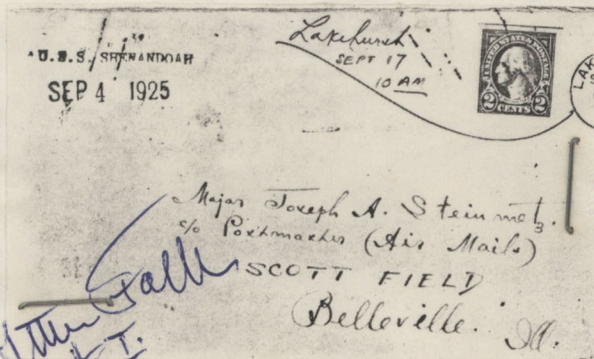 U.S.S. SHENANDOAH
SEP 4 1925
Lakehurst
SEPT 17
10 AM
UNITED STATES POSTAGE
2 CENTS 2
LAK
Major Joseph A. Steinmetz.
c/o Postmaster (Air Mails)
SCOTT FIELD
Belleville. Ill.